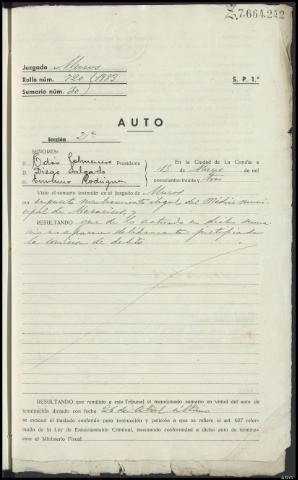 Z.7.664.242
Juzgado Muros
Rollo núm. 720/1933
Sumario núm. 30/
S. P. 1.ª
AUTO
Sección 2ª
SEÑORES:
D. Odón Colmenero Presidente
D. Diego Salgado
D.
En la Ciudad de La Coruña a
15 de Mayo de mil
novecientos treinta y tres
Visto el sumario instruido en el Juzgado de Muros
en supuesto nombramiento ilegal del Médico muni-
cipal de Mazaricos, y
RESULTANDO que de lo actuado en dicho suma-
rio no aparece debidamente justificada
la comisión de delito
RESULTANDO que remitido a este Tribunal el mencionado sumario en virtud del auto de
terminación dictado con fecha 26 de Abril último
se evacuó el traslado conferido para instrucción y petición a que se refiere el art. 627 refor-
mado de la Ley de Enjuiciamiento Criminal, mostrando conformidad a dicho auto de termina-
ción el Ministerio Fiscal.